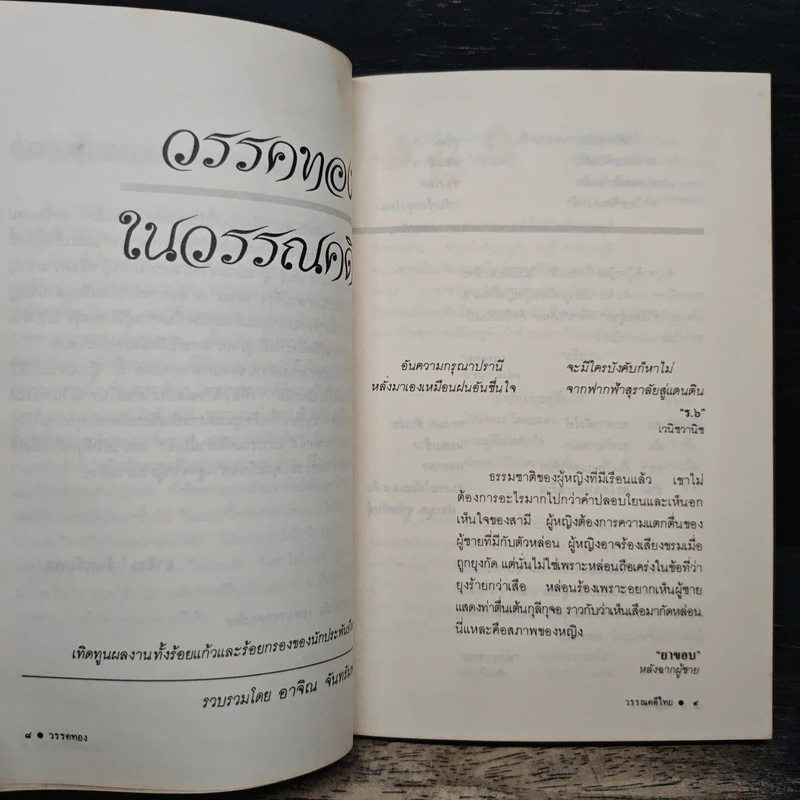 วรรคทอง
ในวรรณคดี
เทิดทูนผลงานทั้งร้อยแก้วและร้อยกรองของนักประพันธ์
รวบรวมโดย อาจิณ จันทรัม
๘ ● วรรคทอง
อันความกรุณาปรานี จะมีใครบังคับก็หาไม่
หลั่งมาเองเหมือนฝนอันชื่นใจ จากฟากฟ้าสุราลัยสู่แดนดิน
"ร.๖"
เวนิชวานิช
ธรรมชาติของผู้หญิงที่มีเรือนแล้ว เขาไม่
ต้องการอะไรมากไปกว่าคำปลอบโยนและเห็นอก
เห็นใจของสามี ผู้หญิงต้องการความแตกตื่นของ
ผู้ชายที่มีกับตัวหล่อน ผู้หญิงอาจร้องเสียงขรมเมื่อ
ถูกยุงกัด แต่นั่นไม่ใช่เพราะหล่อนถือเคร่งในข้อที่ว่า
ยุงร้ายกว่าเสือ หล่อนร้องเพราะอยากเห็นผู้ชาย
แสดงท่าตื่นเต้นกุลีกุจอ ราวกับว่าเห็นเสือมากัดหล่อน
นี่แหละคือสภาพของหญิง
"ยาขอบ"
หลังฉากผู้ชาย
วรรณคดีไทย ● ๙